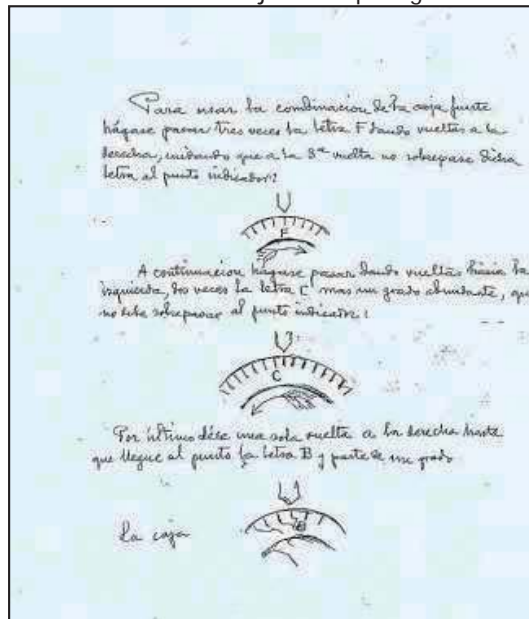 Para usar la combinacion de la caja fuerte
hágase pasar tres veces la letra F dando vueltas a la
derecha, cuidando que a la 3ª vuelta no sobrepase dicha
letra al punto indicador:
F
A continuacion hágase pasar dando vueltas hacia la
izquierda, dos veces la letra C mas un grado abundante, que
no debe sobrepasar al punto indicador:
C
Por último dése una sola vuelta a la derecha hasta
que llegue al punto la letra B y parte de un grado
B
La caja